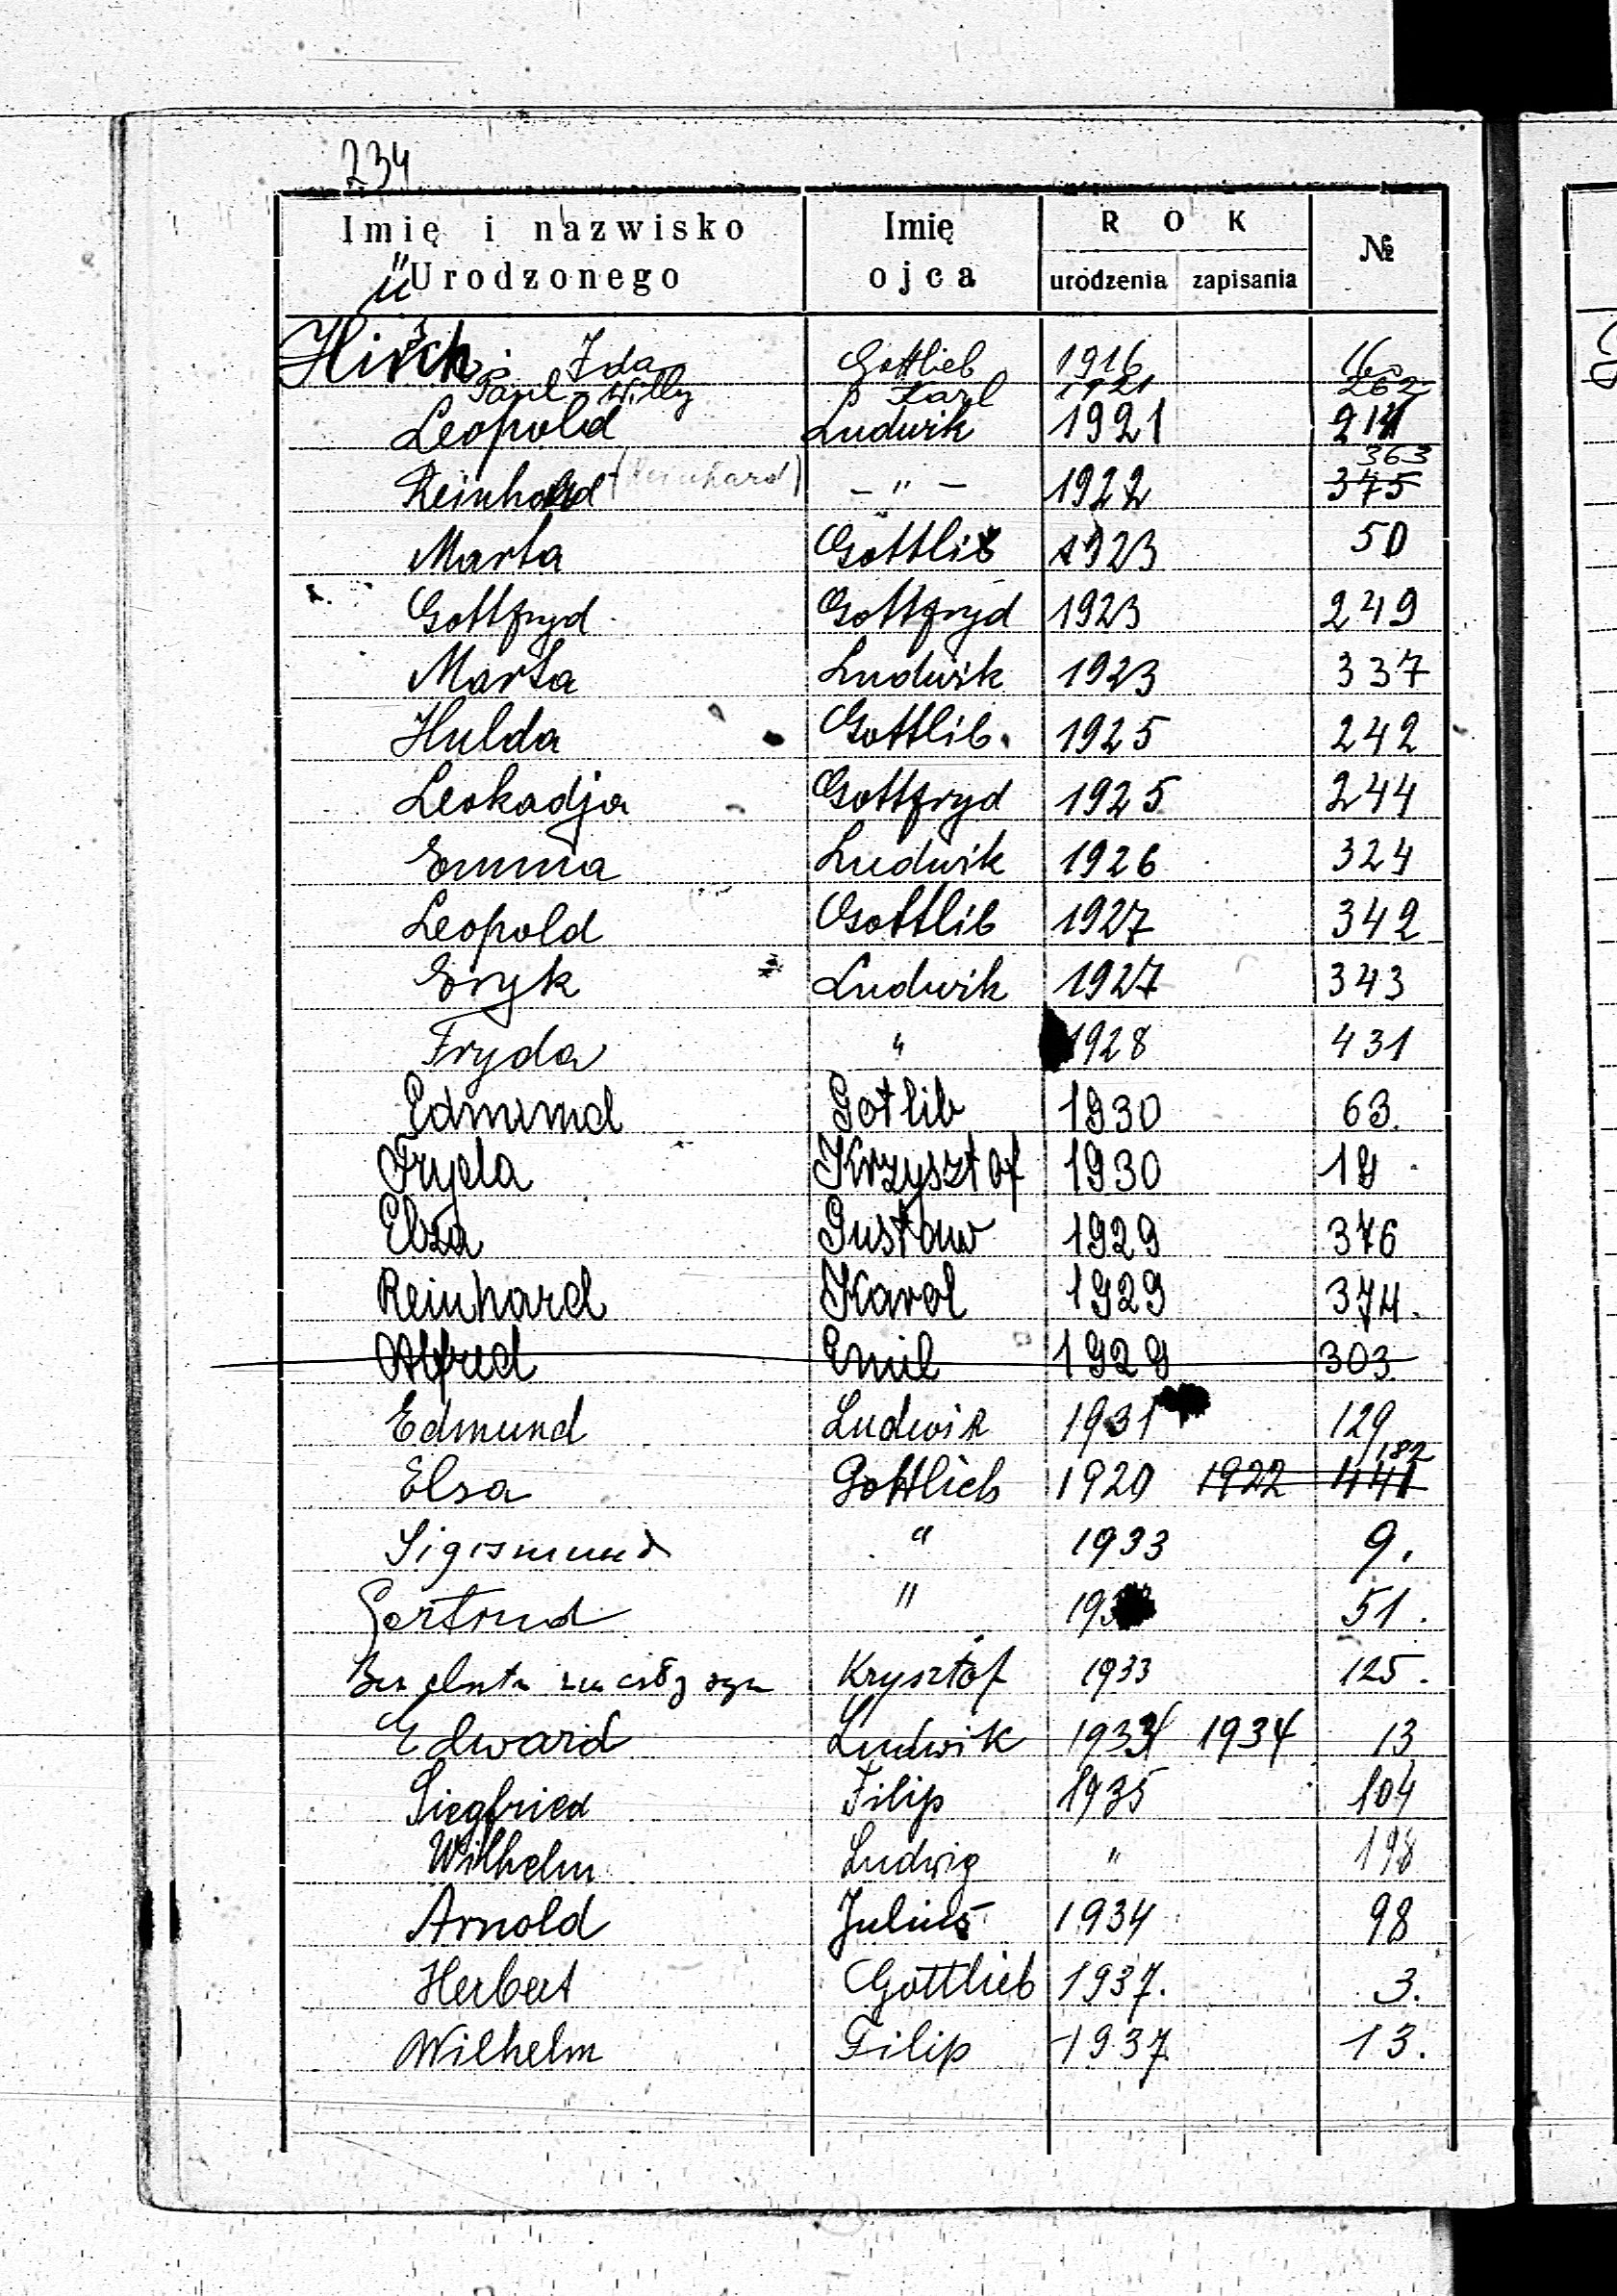 234
Imię i nazwisko Urodzonego | Imię ojca | ROK urodzenia | zapisania | №
Hirsch: Ida Gottlieb 1916 16
Paul Willy Karl 1921 262
Leopold Ludwik 1921
Reinhold (Reinhard) – " – 1922 375 363
Marta Gottlib 1923 50
Gottfryd Gottfryd 1923 249
Marta Ludwik 1923 337
Hulda Gottlib 1925 242
Leokadja Gottfryd 1925 244
Emma Ludwik 1926 324
Leopold Gottlib 1927 342
Eryk Ludwik 1927 343
Fryda " 1928 431
Edmund Gotlib 1930 63.
Fryda Krzysztof 1930
Elza Gustaw 1929 376
Reinhard Karol 1929 374.
Alfred Emil 1929 303
Edmund Ludwik 1931 129
Elsa Gottlieb 1920 1922 441 182
Sigismund " 1933 9.
Gertrud " 51.
Krysztof 1933 125.
Edward Ludwik 1934 13
Siegfried Filip 1935 104
Wilhelm Ludwig " 198
Arnold Julius 1934 98
Herbert Gottlieb 1937. 3.
Wilhelm Filip 1937 13.